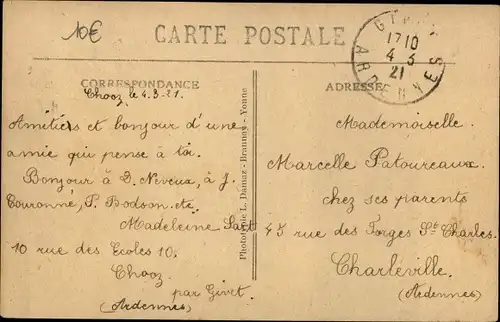 10€
CARTE POSTALE
17 10
4 3
21
ARDENNES
CORRESPONDANCE
ADRESSE
Chooz le 4.3.21.
Amitiés et bonjour d'une
amie qui pense à toi.
Bonjour à D. Neveux, à J.
Couronne, P. Bodson. etc.
Madeleine
10 rue des Ecoles 10.
Chooz
par Givet.
(Ardennes)
Phototypie L. Damaz - Brannay - Yonne
Mademoiselle
Marcelle Patoureaux
chez ses parents
45 rue des Forges St Charles.
Charleville.
(Ardennes)